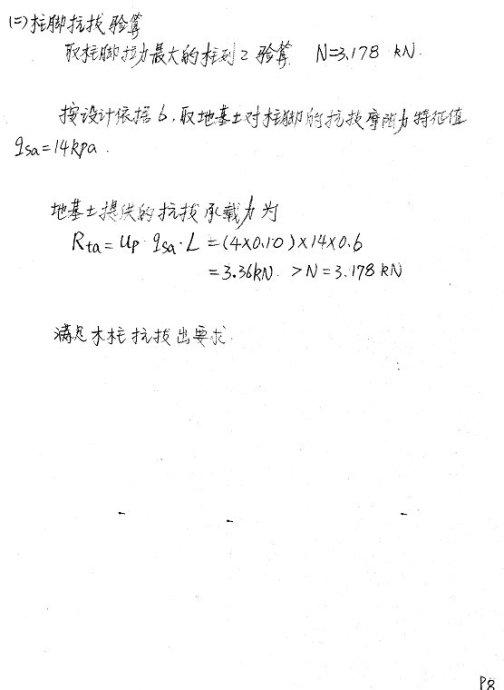 (二)柱脚抗拔验算
取柱脚拉力最大的柱列2验算 N=3.178 kN.
按设计依据6,取地基土对柱脚的抗拔摩阻力特征值
qsa=14kpa.
地基土提供的抗拔承载力为
Rta=Up·qsa·L=(4×0.10)×14×0.6
=3.36kN. >N=3.178 kN
满足木柱抗拔出要求.
P8